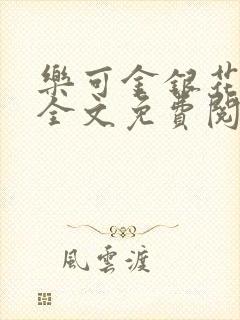 樂可金銀花
全文免費閱
風雲渡